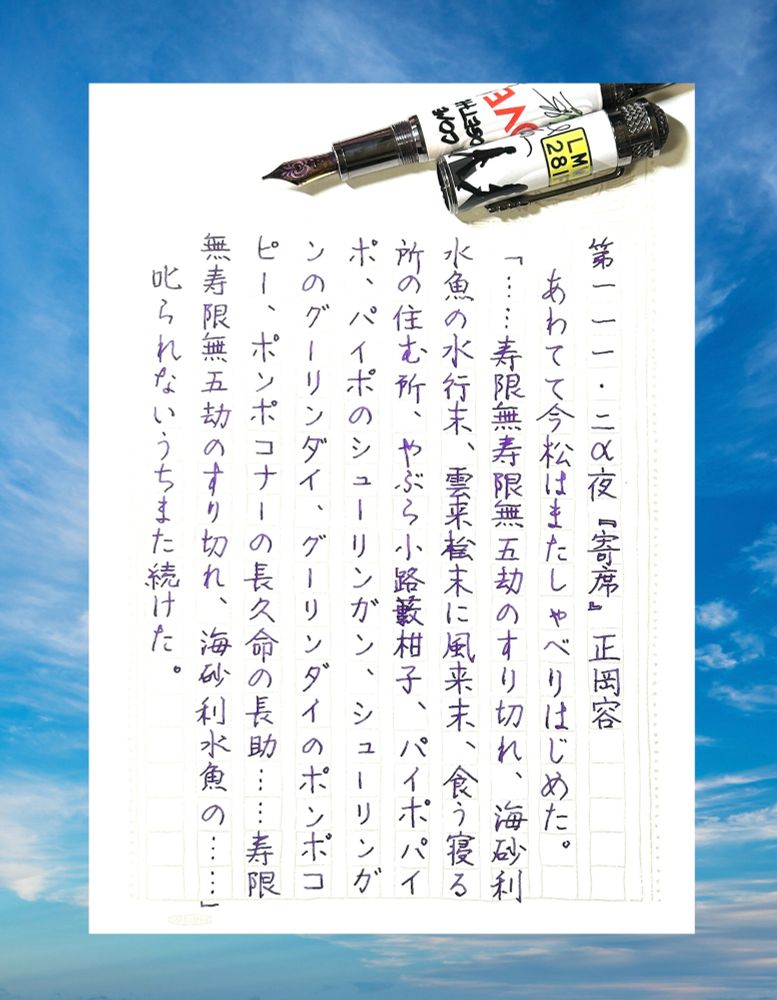 第一一一・二α夜『寄席』 正岡容
あわてて今松はまたしゃべりはじめた。
「……寿限無寿限無五劫のすり切れ、海砂利
水魚の水行末、雲来末に風来末、食う寝る
所の住む所、やぶら小路藪柑子、パイポパイ
ポ、パイポのシューリンガン、シューリンガ
ンのグーリンダイ、グーリンダイのポンポコ
ピー、ポンポコナーの長久命の長助……寿限
無寿限無五劫のすり切れ、海砂利水魚の……」
叱られないうちまた続けた。
COME
LM
28I